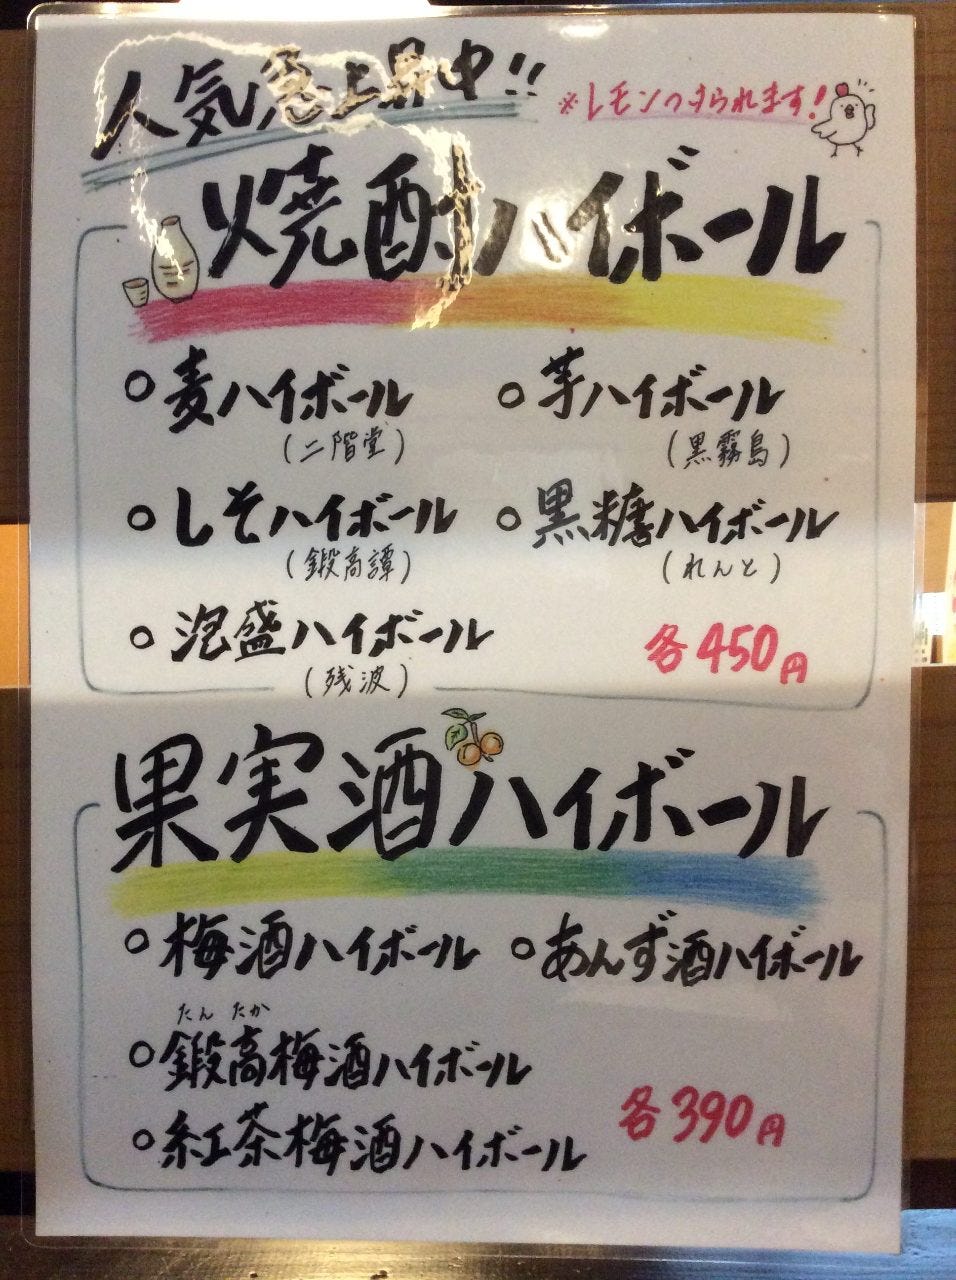 人気急上昇中!!
※レモンつけられます!
焼酎ハイボール
○麦ハイボール
(二階堂)
○芋ハイボール
(黒霧島)
○しそハイボール
(鍛高譚)
○黒糖ハイボール
(れんと)
○泡盛ハイボール
(残波)
各450円
果実酒ハイボール
○梅酒ハイボール
○あんず酒ハイボール
たんたか
○鍛高梅酒ハイボール
○紅茶梅酒ハイボール
各390円